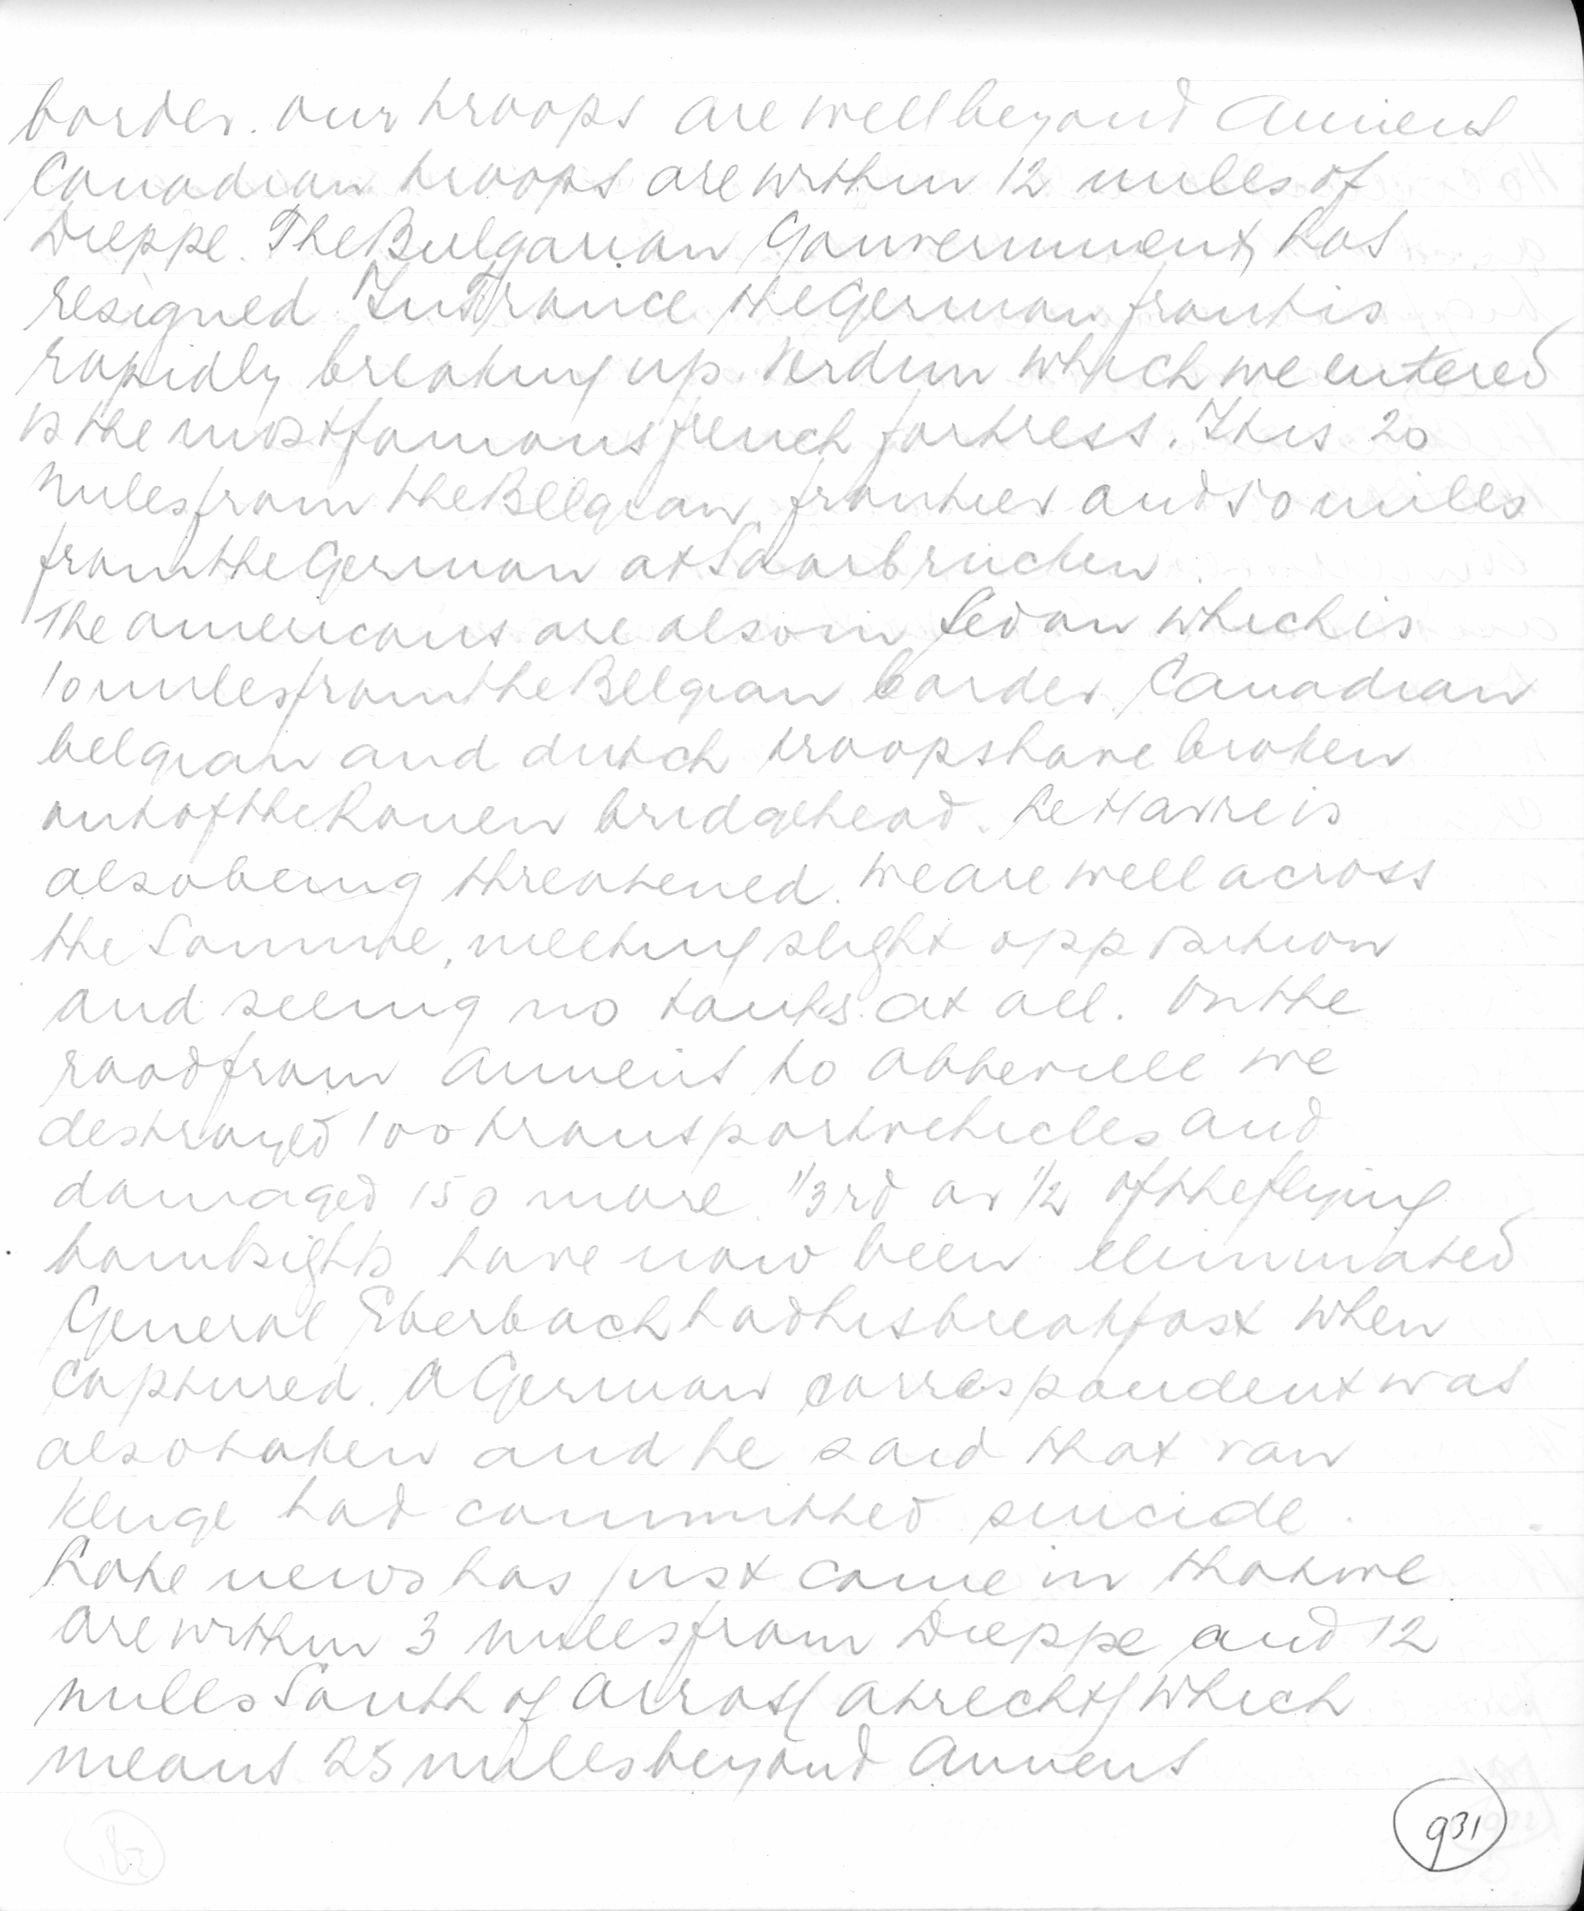 border. our troops are well beyond Amiens
Canadian troops are within 12 miles of
Dieppe. The Bulgarian Gouvernment has
resigned. In France the German front is
rapidly breaking up. Verdun which we entered
is the most famous french fortress. It is 20
miles from the Belgian frontier and 50 miles
from the German at Saarbrücken.
The americans are also in Sedan which is
10 miles from the Belgian border. Canadian
belgian and dutch troops have broken
out of the Rouen bridgehead. Le Havre is
also being threatened. We are well across
the Somme, meeting slight opposition
and seeing no tanks at all. On the
road from Amiens to Abbeville we
destroyed 100 transportvehicles and
damaged 150 more. 1/3rd or 1/2 of the flying
bombsights have now been eliminated
General Eberbach had his breakfast when
captured. A German correspondent was
also taken and he said that von
Kluge had committed suicide.
Late news has just come in that we
are within 3 miles from Dieppe and 12
miles South of Arras (Atrecht) which
means 25 miles beyond Amiens
931